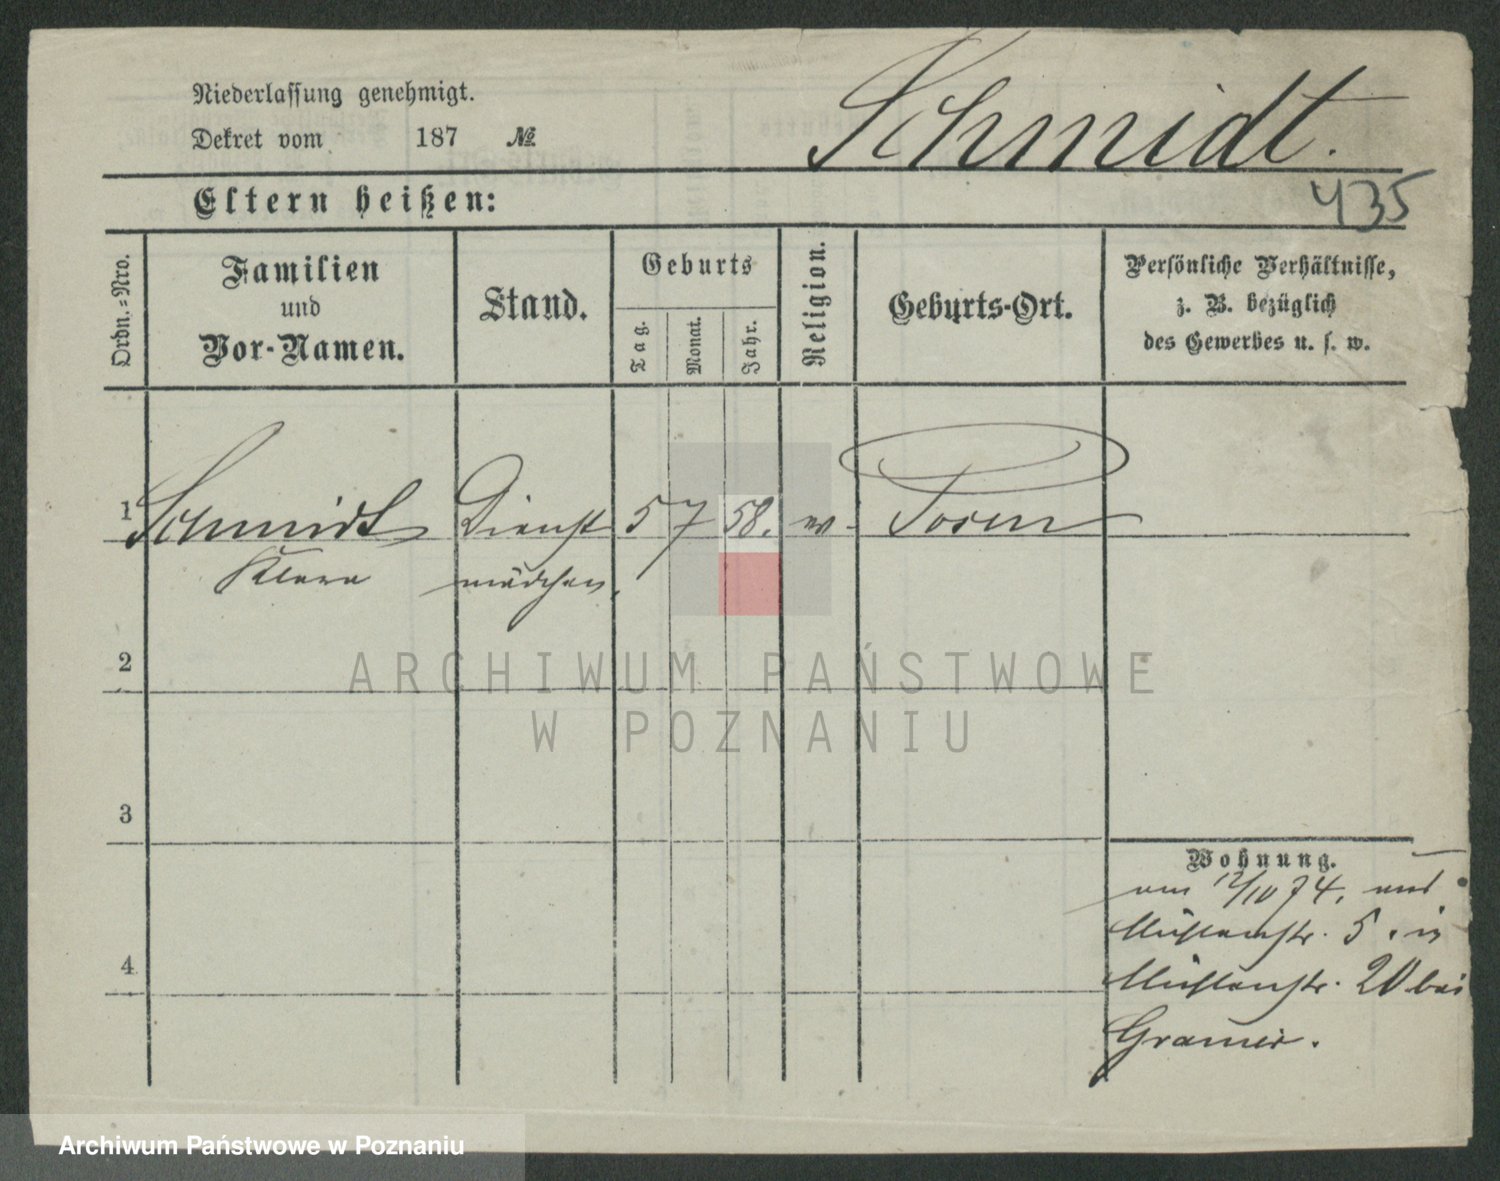 Niederlassung genehmigt.
Dekret vom 187 №
Schmidt.
435
Eltern heißen:
Ordn.-Nro.
Familien
und
Vor-Namen.
Stand.
Geburts
Tag.
Monat.
Jahr.
Religion.
Geburts-Ort.
Persönliche Verhältnisse,
z. B. bezüglich
des Gewerbes u. s. w.
1 Schmidt Dienst 5 7 58. ev. Posen
Klara mädchen.
2
ARCHIWUM PAŃSTWOWE
W POZNANIU
3
4
Wohnung.
am 12/10 74. aus
Mühlenstr. 5. in
Mühlenstr. 20 bei
Archiwum Państwowe w Poznaniu